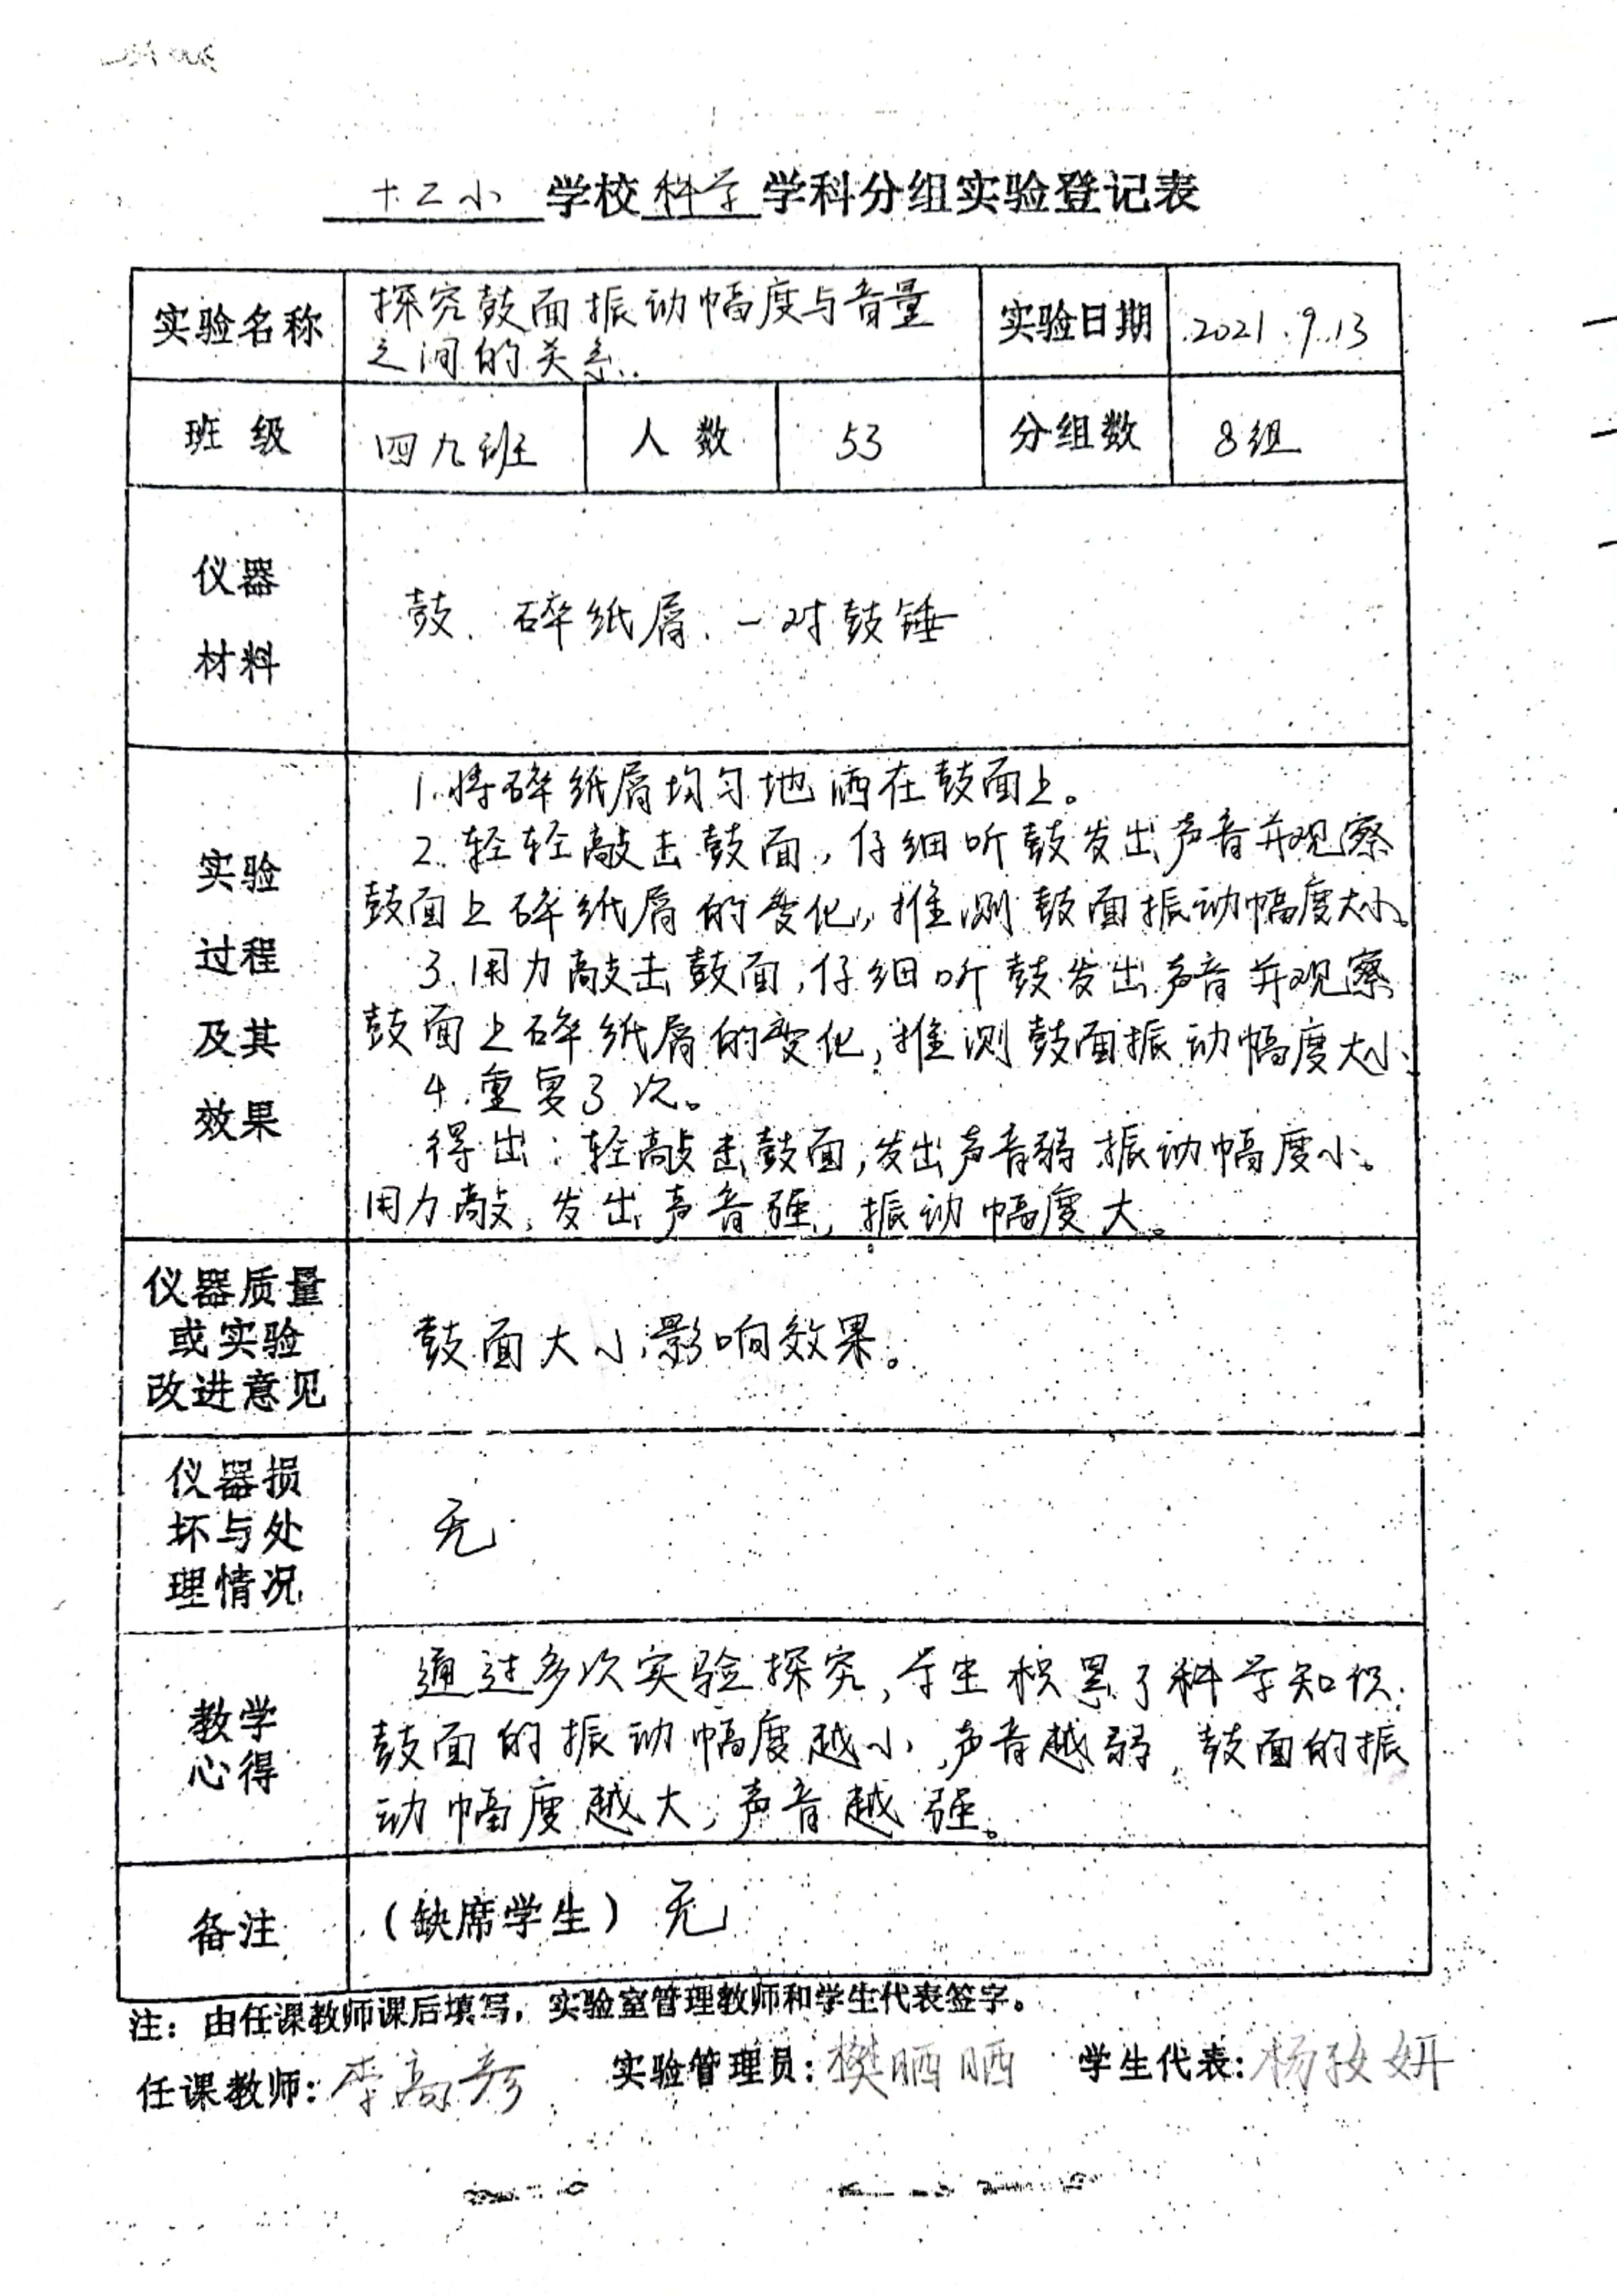 十二小 学校 科学 学科分组实验登记表
实验名称 探究鼓面振动幅度与音量之间的关系. 实验日期 2021.9.13
班级 四九班 人数 53 分组数 8组
仪器
材料
鼓、碎纸屑、一对鼓锤
实验
过程
及其
效果
1.将碎纸屑均匀地洒在鼓面上。
2.轻轻敲击鼓面,仔细听鼓发出声音并观察
鼓面上碎纸屑的变化,推测鼓面振动幅度大小。
3.用力敲击鼓面,仔细听鼓发出声音并观察
鼓面上碎纸屑的变化,推测鼓面振动幅度大小.
4.重复3次。
得出:轻敲击鼓面,发出声音弱.振动幅度小。
用力敲,发出声音强,振动幅度大。
仪器质量
或实验
改进意见
鼓面大小影响效果。
仪器损
坏与处
理情况
无
教学
心得
通过多次实验探究,学生积累了科学知识.
鼓面的振动幅度越小,声音越弱,鼓面的振
动幅度越大,声音越强。
备注 (缺席学生) 无
注:由任课教师课后填写,实验室管理教师和学生代表签字。
任课教师:李高彦 实验管理员:樊晒晒 学生代表:杨孜妍